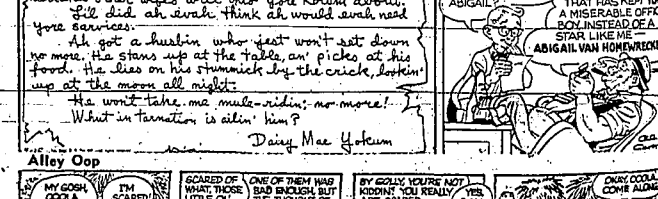 Li'l did ah evah think ah would evah need
yore sarvices.
Ah got a husbin who jest won't set down
no more. He stans up at the table, an' picks at his
food. He lies on his stummick by the crick, lookin'
up at the moon all night.
He won't take me mule-ridin' no more!
Whut in tarnation is ailin' him?
Daisy Mae Yokum
ABIGAIL?
THAT HAS KEPT
A MISERABLE OFFICE
BOY, INSTEAD OF A
STAR LIKE ME—
ABIGAIL VAN HOMEWRECK
Alley Oop
MY GOSH,
OOOLA
I'M
SCARED!
SCARED OF
WHAT, THOSE
ONE OF THEM WAS
BAD ENOUGH, BUT
THE THOUGHT OF
BY GOLLY, YOU'RE NOT
KIDDIN'! YOU REALLY
YES,
OKAY, OOOLA
COME ALONG